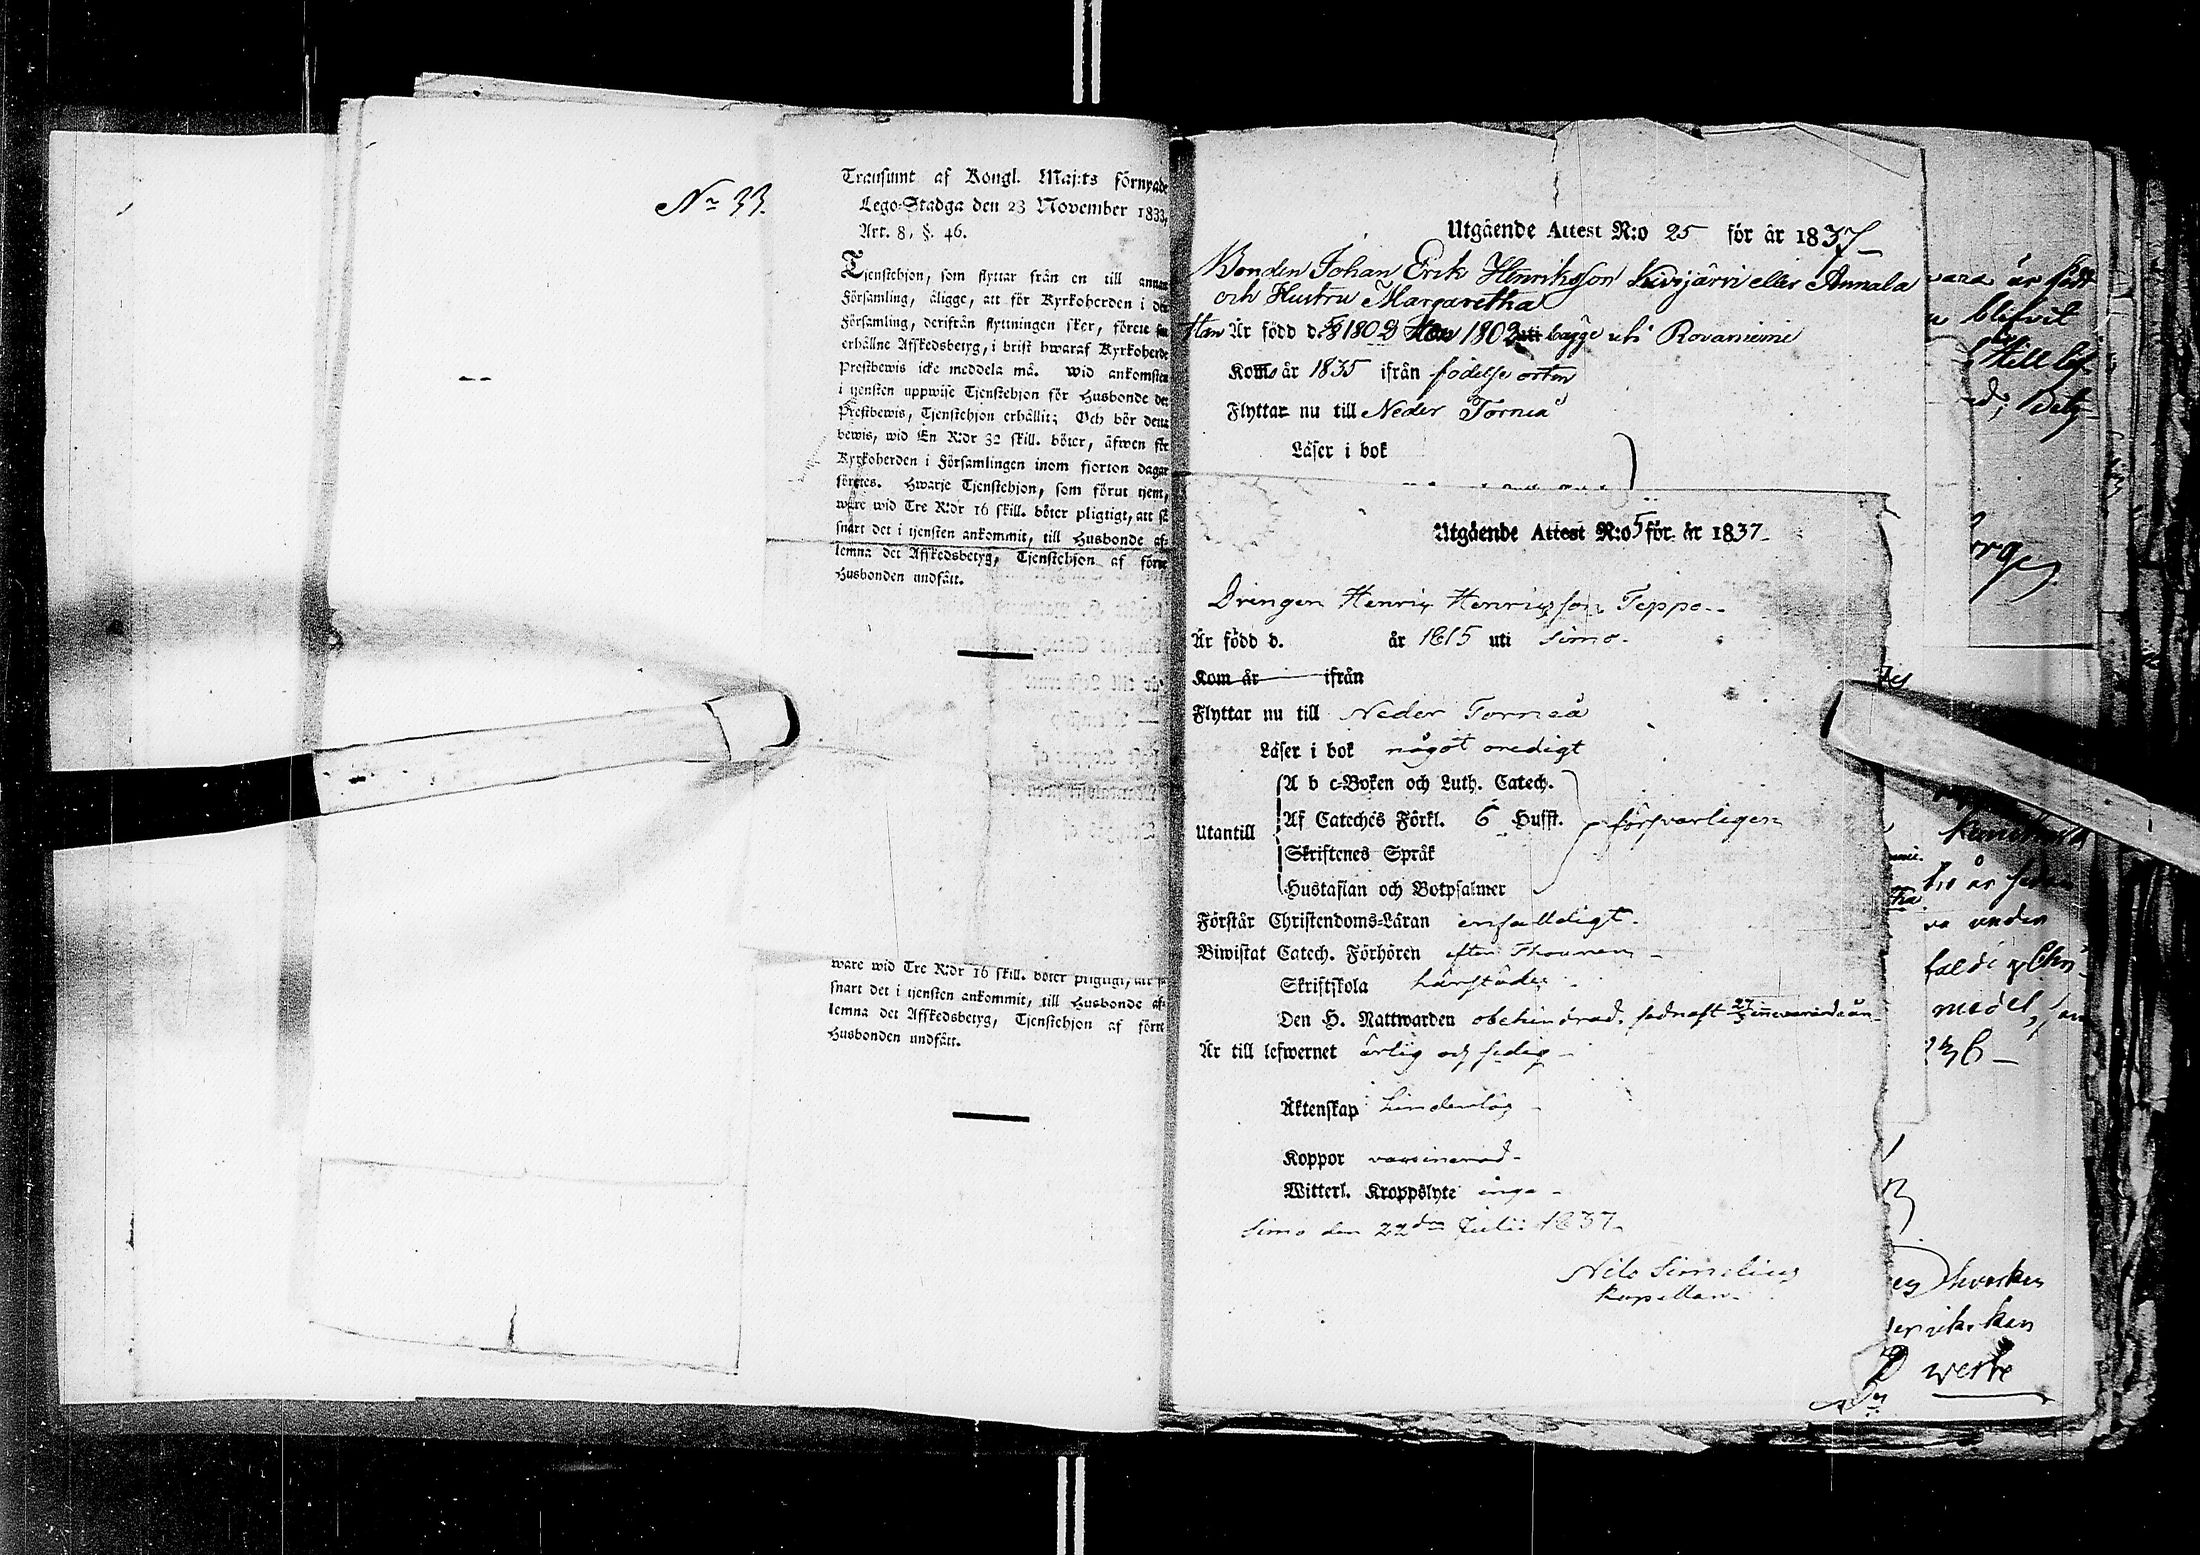 No 33.
Transumt af Kongl. Maj:ts förnyade
Lego-Stadga den 23 November 1833,
Art. 8, §. 46.
Tjenstehjon, som flyttar från en till annan
Församling, åligge, att för Kyrkoherden i den
Församling, derifrån flyttningen sker, förete sin
erhållne Afskedsbetyg, i brist hwaraf Kyrkoherde
Prestbewis icke meddela må. Wid ankomsten
i tjensten uppwise Tjenstehjon för Husbonde det
Prestbewis, Tjenstehjon erhållit; Och bör detta
bewis, wid En R:dr 32 skill. böter, äfwen för
Kyrkoherden i Församlingen inom fjorton dagar
företes. Hwarje Tjenstehjon, som förut tjent,
ware wid Tre R:dr 16 skill. böter pligtigt, att så
snart det i tjensten ankommit, till Husbonde af-
lemna det Afskedsbetyg, Tjenstehjon af förre
Husbonden undfått.
ware wid Tre R:dr 16 skill. böter pligtigt, att så
snart det i tjensten ankommit, till Husbonde af-
lemna det Afskedsbetyg, Tjenstehjon af förre
Husbonden undfått.
Utgående Attest N:o 25 för år 1837
Bonden Johan Erik Henriksson Kivijärvi eller Annala
och Hustru Margaretha
Han Är född d. 1802 1802 bägge uti Rovaniemi
Kom år 1835 ifrån födelse orten
Flyttar nu till Neder Torneå
Läser i bok
Utgående Attest N:o 5 för år 1837
Drengen Henric Henricsson Teppo
Är född d. år 1815 uti Simo.
Kom år ifrån
Flyttar nu till Neder Torneå
Läser i bok något oredigt
A b c-Boken och Luth. Catech.
Af Cateches Förkl. 6 Husst.
Utantill försvarligen
Skriftenes Språk
Hustaflan och Botpsalmer
Förstår Christendoms-Läran enfalldigt
Biwistat Catech. Förhören efter
Skriftskola härstädes
Den H. Nattwarden obehindrad, sednast 27/3 innevarande år
Är till lefwernet ärlig och sedig
Äktenskap hinderlös
Koppor vaccinerad
Witterl. Kroppslyte inga
Simo den 22dra Julii 1837.
Nils Simelius
Kapellan.
är född
blifvit
till
under
werke